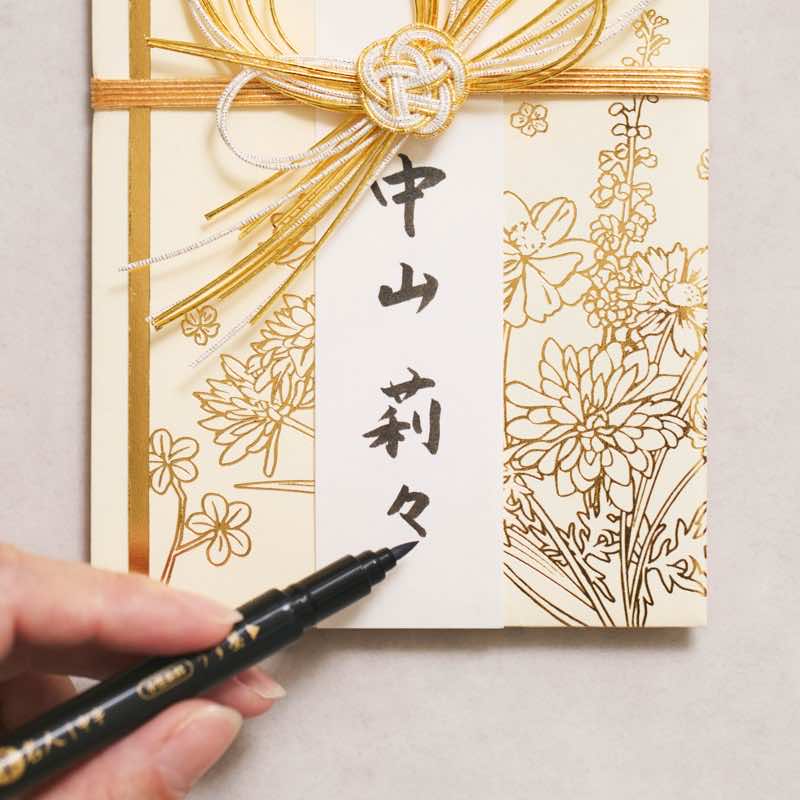 中山莉々